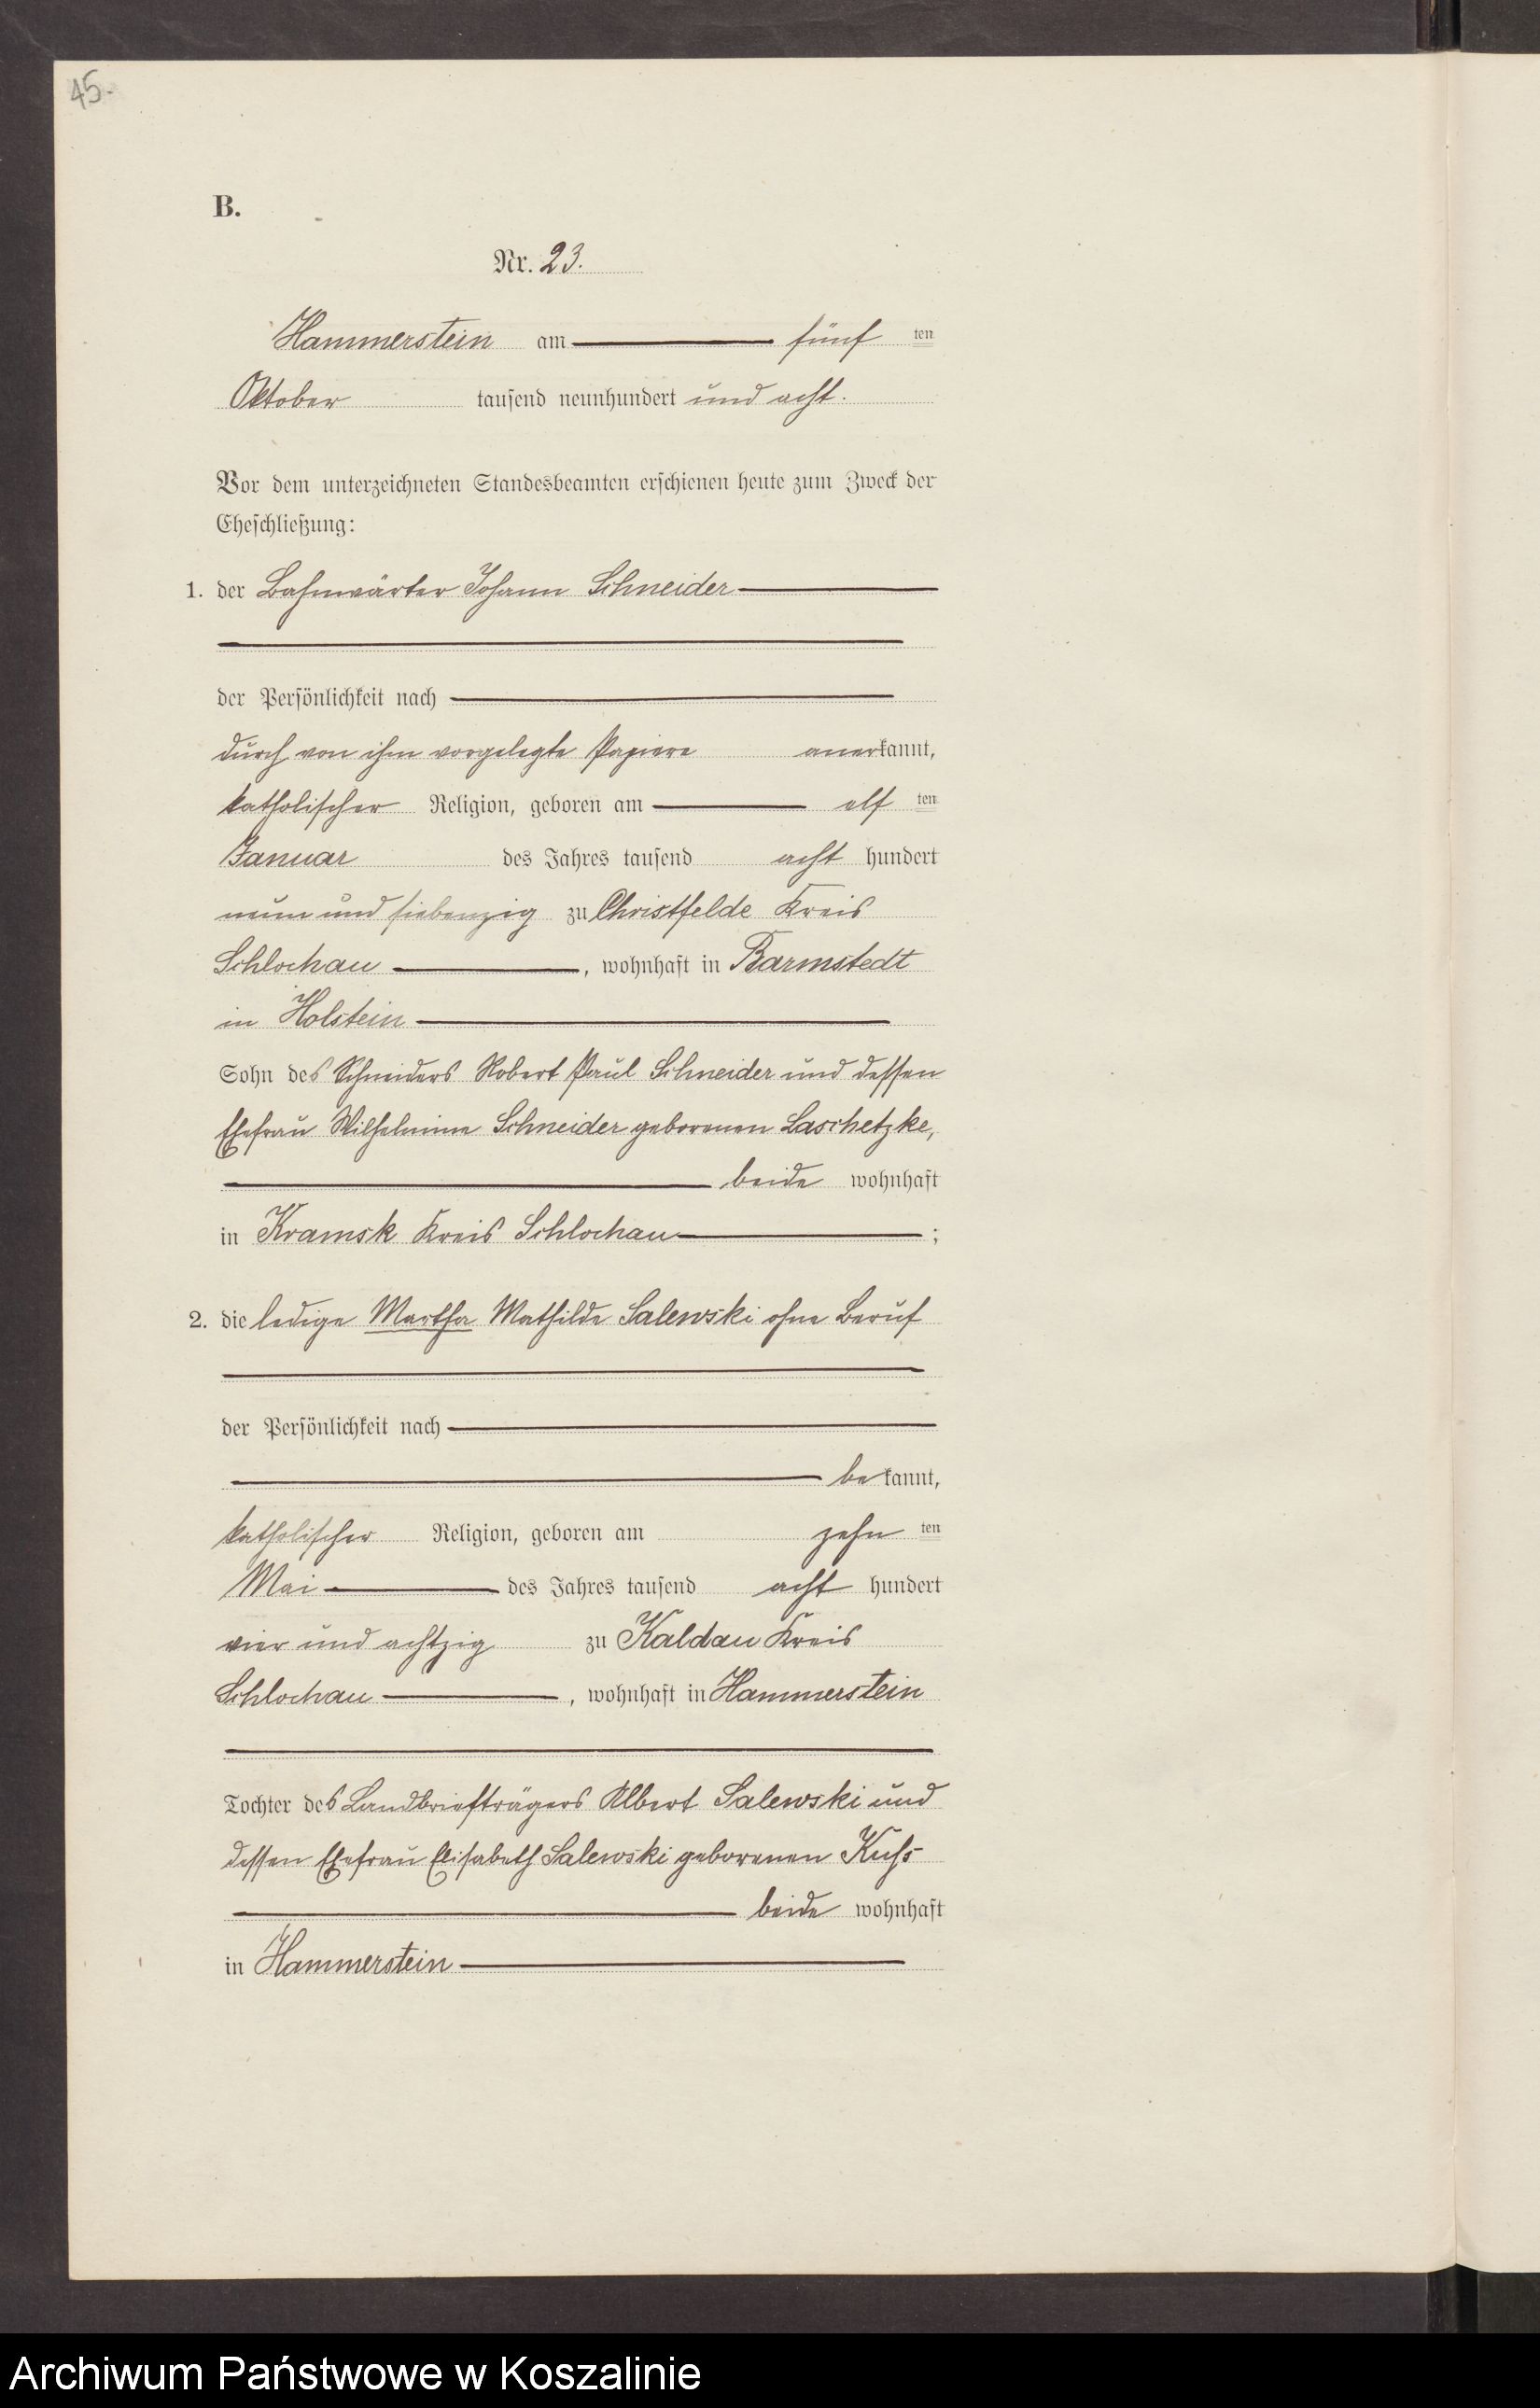 45.
B.
Nr. 23.
Hammerstein am fünf ten
Oktober tausend neunhundert und acht.
Vor dem unterzeichneten Standesbeamten erschienen heute zum Zweck der
Eheschließung:
1. der Bahnwärter Johann Schneider
der Persönlichkeit nach
durch von ihm vorgelegte Papiere anerkannt,
katholischer Religion, geboren am elf ten
Januar des Jahres tausend acht hundert
neun und siebenzig zu Christfelde Kreis
Schlochau, wohnhaft in Barmstedt
in Holstein
Sohn des Schneiders Robert Paul Schneider und dessen
Ehefrau Wilhelmine Schneider geborenen Laschetzke,
beide wohnhaft
in Kramsk Kreis Schlochau;
2. die ledige Martha Mathilde Salewski ohne Beruf
der Persönlichkeit nach
bekannt,
katholischer Religion, geboren am zehn ten
Mai des Jahres tausend acht hundert
vier und achtzig zu Kaldau Kreis
Schlochau, wohnhaft in Hammerstein
Tochter des Landbriefträgers Albert Salewski und
dessen Ehefrau Elisabeth Salewski geborenen
beide wohnhaft
in Hammerstein
Archiwum Państwowe w Koszalinie